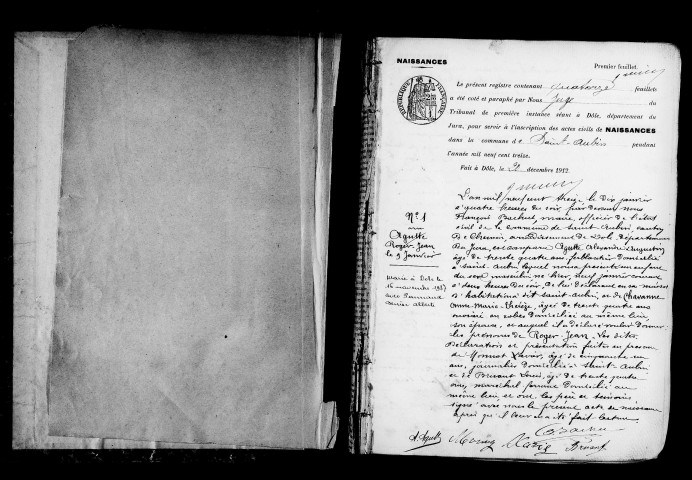 NAISSANCES
Premier feuillet.
Le présent registre contenant quatorze feuillets
a été coté et paraphé par Nous Juge du
Tribunal de première instance séant à Dôle, département du
Jura, pour servir à l'inscription des actes civils de NAISSANCES
dans la commune de Saint-Aubin pendant
l'année mil neuf cent treize.
Fait à Dôle, le 20 décembre 1912
RÉPUBLIQUE FRANÇAISE
N° 1
Agutte
Roger Jean
le 9 Janvier
Marié à Dole le
16 novembre 1937
avec
L'an mil neuf cent treize le dix janvier
à quatre heures du soir, par devant nous
François maire, officier de l'état
civil de la commune de Saint-Aubin, canton
de Chemin, arrondissement de Dole, département
du Jura, est comparu Agutte Alexandre Augustin
âgé de trente quatre ans, ferblantier domicilié
à Saint-Aubin lequel nous a présenté un enfant
du sexe masculin né hier, neuf janvier courant
à deux heures du soir, de lui déclarant en sa maison
d'habitation à dit Saint-Aubin, et de Chavanne
Anne-Marie-Thérèze, âgée de trente quatre ans
ouvrière en robes domiciliée au même lieu
son épouse, et auquel il a déclaré vouloir donner
les prénoms de Roger-Jean. Les dites
déclaration et présentation faites en présence
de Monnot Xavier, âgé de cinquante un
ans, journalier domicilié à Saint-Aubin
et de Bruant Louis, âgé de trente quatre
ans, maréchal ferrant domicilié au
même lieu, et ont les père et témoins
signé avec nous le présent acte de naissance
après qu'il leur en a été fait lecture
A. Agutte Monnot Xavier Bruant